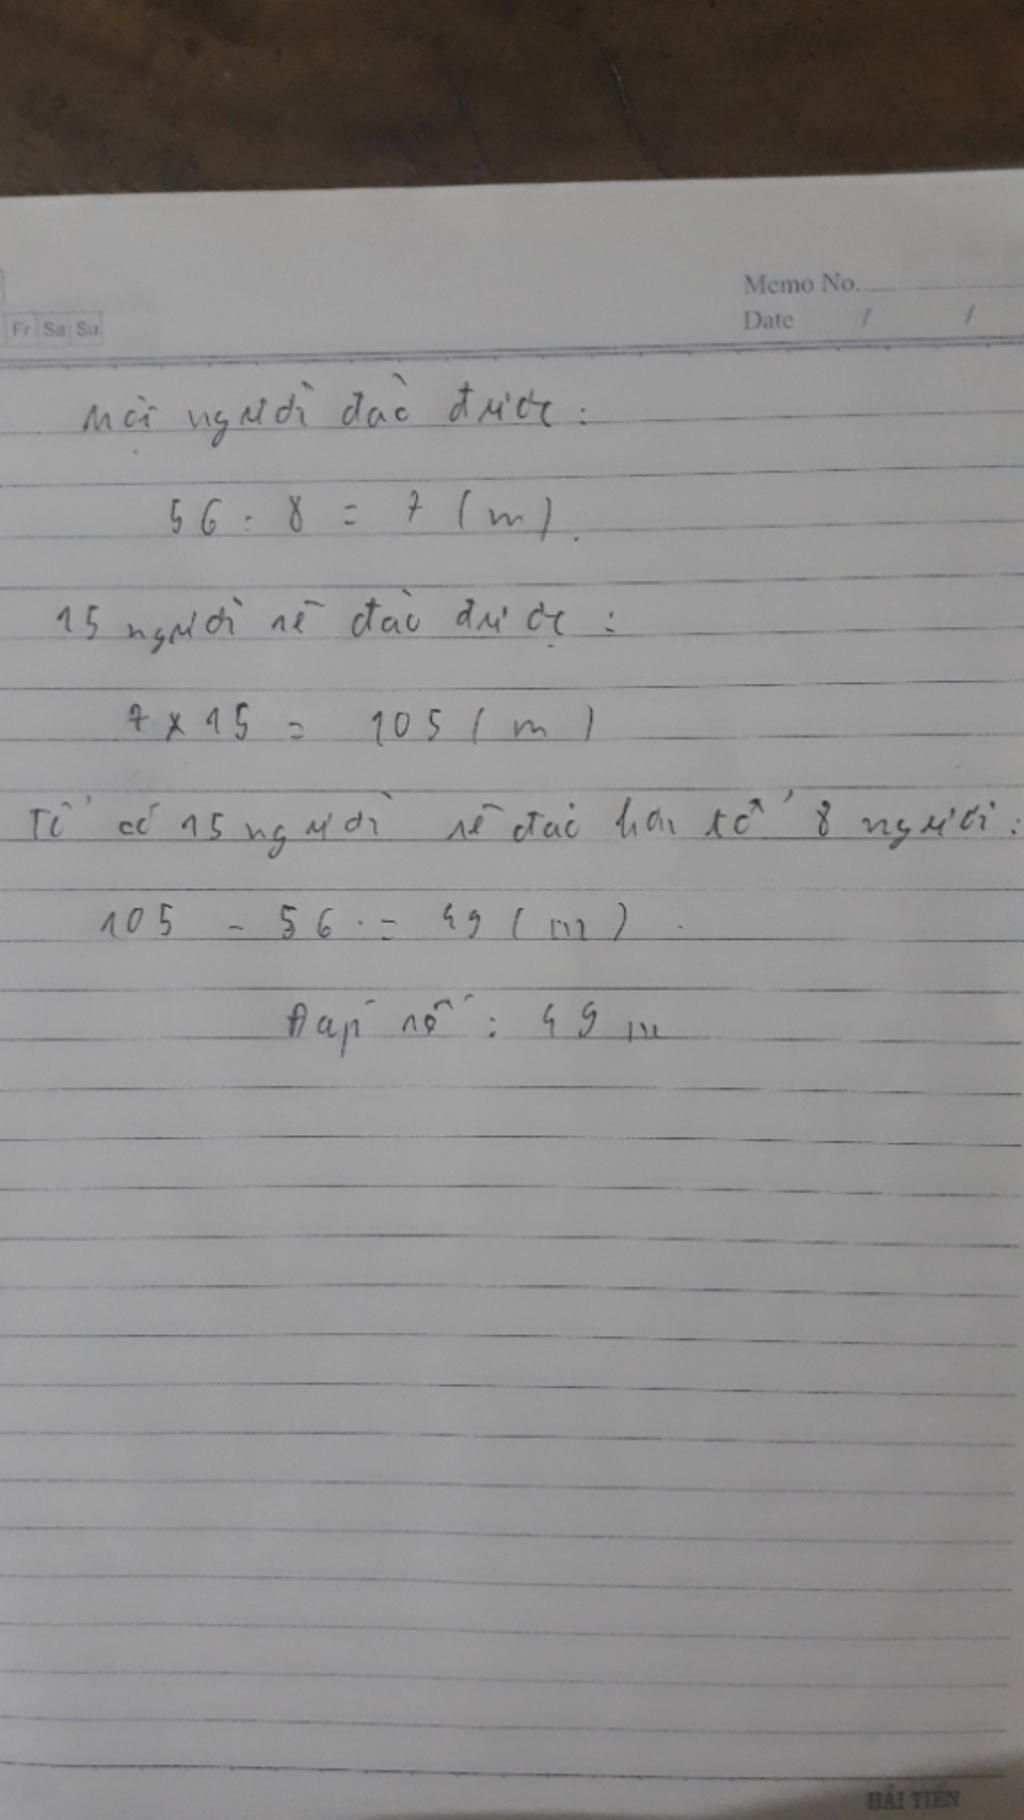 Memo No.
Fr Sa Su
Date / /
Mỗi người đào được :
56 : 8 = 7 (m).
15 người sẽ đào được :
7 x 15 = 105 (m)
Tổ có 15 người sẽ đào hơn tổ 8 người :
105 - 56 = 49 (m)
Đáp số : 49 m
HẢI TIẾN